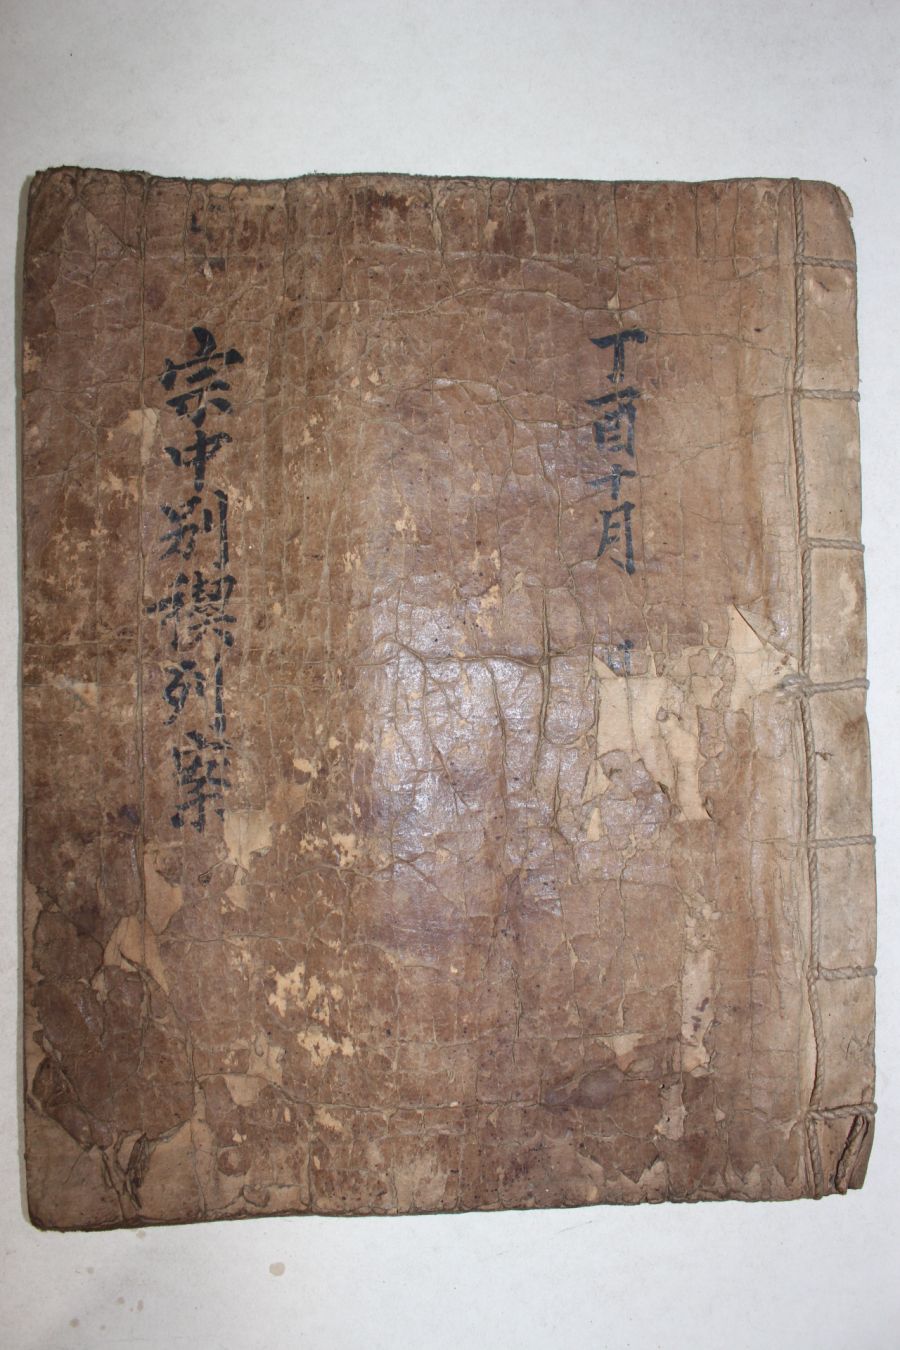 丁酉十月 日
宗中別稧列案